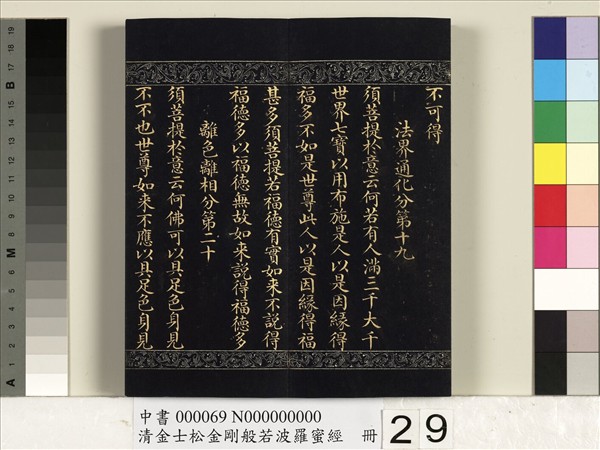 不可得
法界通化分第十九
須菩提於意云何若有人滿三千大千
世界七寶以用布施是人以是因緣得
福多不如是世尊此人以是因緣得福
甚多須菩提若福德有實如来不說得
福德多以福德無故如来說得福德多
離色離相分第二十
須菩提於意云何佛可以具足色身見
不不也世尊如来不應以具足色身見
中書 000069 N000000000
清金士松金剛般若波羅蜜經 冊
29
A 1 2 3 4 5 M 8 9 10 11 12 13 14 15 B 17 18 19